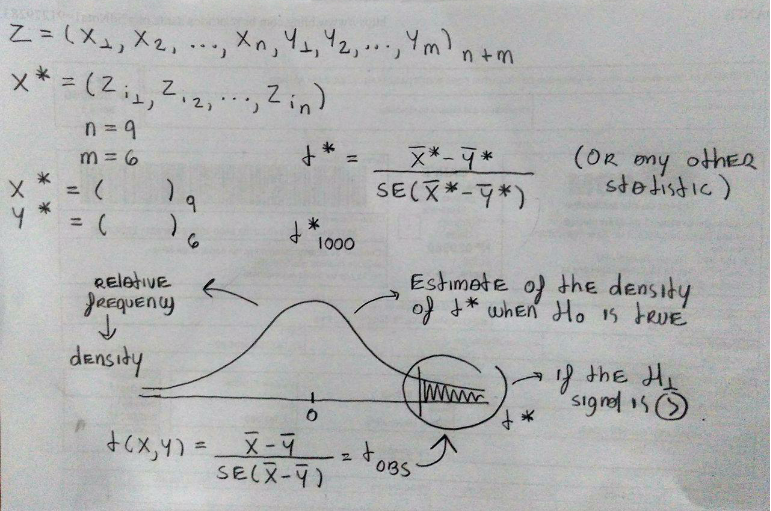 Z = (X₁, X₂, ..., Xₙ, Y₁, Y₂, ..., Yₘ) n+m
X* = (Z i₁, Z i₂, ..., Z iₙ)
n = 9
m = 6
t* = X̄* - Ȳ* / SE(X̄* - Ȳ*) (OR any other statistic)
X* = ( )₉
Y* = ( )₆
t*₁₀₀₀
RELATIVE frequency
↓
density
Estimate of the density
of t* when H₀ is true
if the H₁
signal is >
0
t*
t(X,Y) = X̄ - Ȳ / SE(X̄ - Ȳ) = t OBS